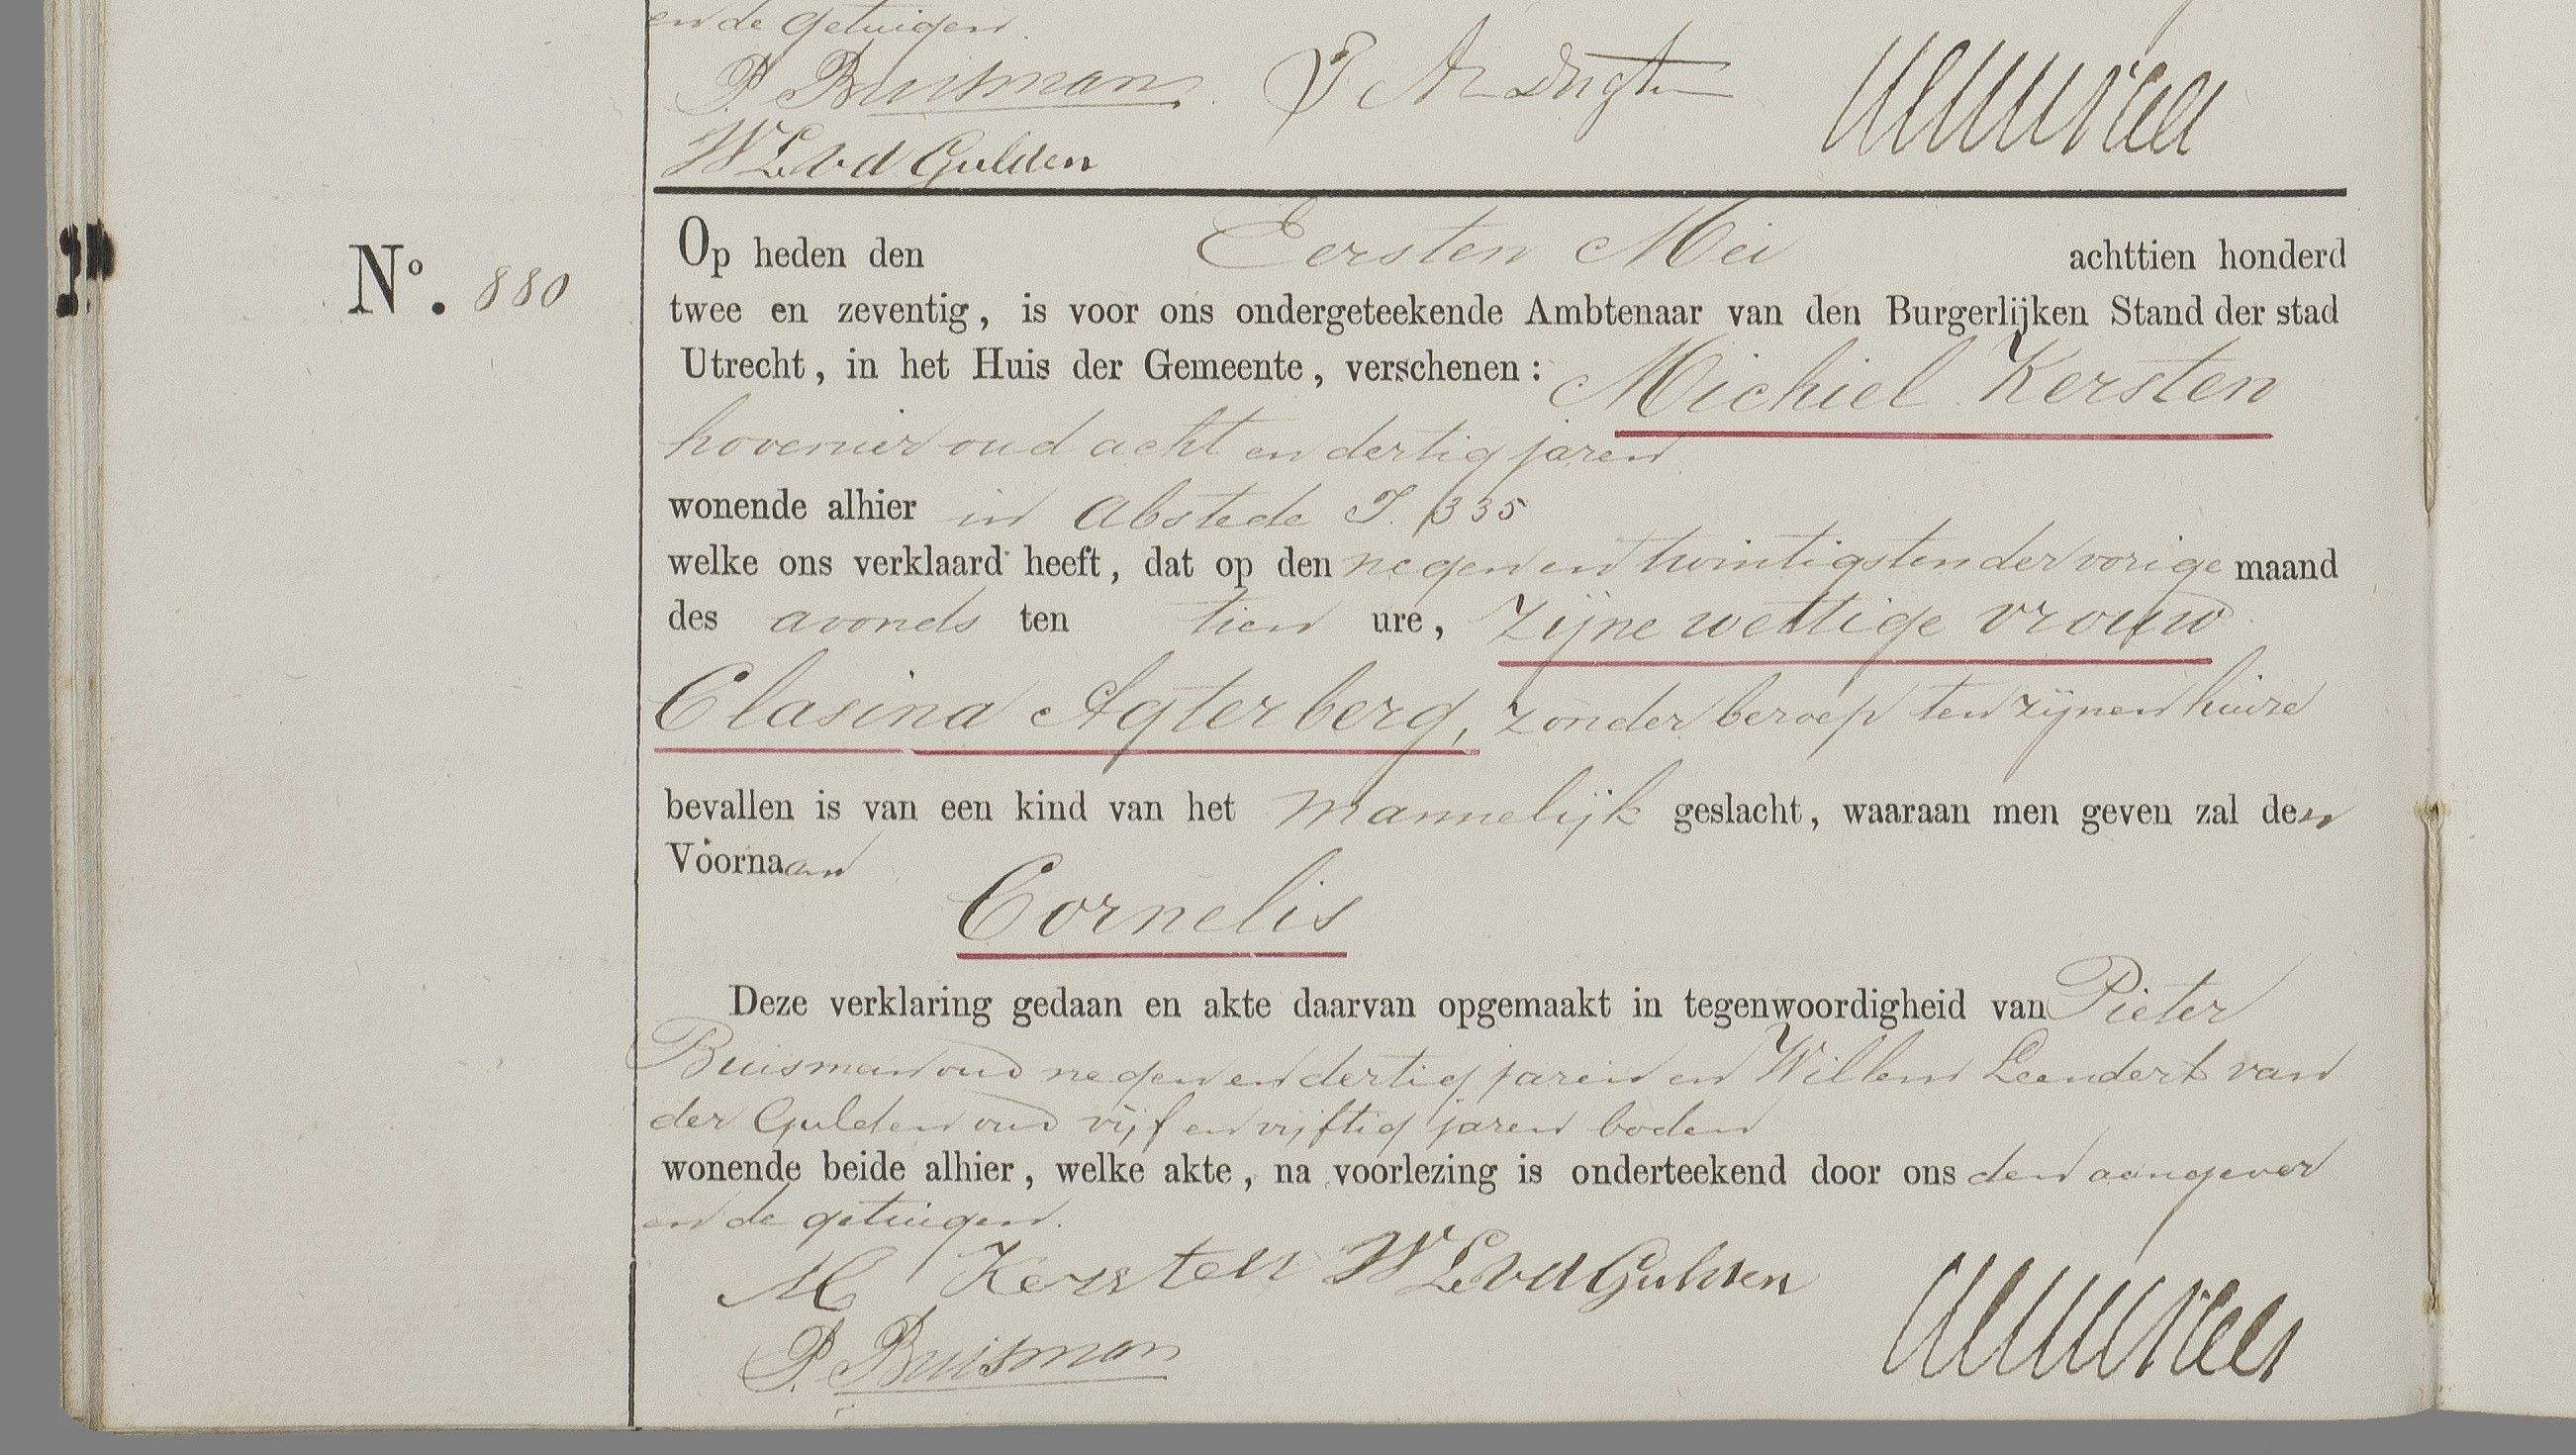 en de getuigen.
P. Buisman
W L v d Gulden
No. 880
Op heden den Eersten Mei achttien honderd
twee en zeventig, is voor ons ondergeteekende Ambtenaar van den Burgerlijken Stand der stad
Utrecht, in het Huis der Gemeente, verschenen: Michiel Kersten
hovenier oud acht en dertig jaren
wonende alhier in Abstede I. 335
welke ons verklaard heeft, dat op den negen en twintigsten der vorige maand
des avonds ten tien ure, zijne wettige vrouw
Clasina Agterberg, zonder beroep ten zijnen huize
bevallen is van een kind van het mannelijk geslacht, waaraan men geven zal den
Voornaan
Cornelis
Deze verklaring gedaan en akte daarvan opgemaakt in tegenwoordigheid van Pieter
Buisman oud negen en dertig jaren en Willem Leendert van
der Gulden oud vijf en vijftig jaren boden
wonende beide alhier, welke akte, na voorlezing is onderteekend door ons den aangever
en de getuigen.
M Kersten W L v d Gulden
P. Buisman